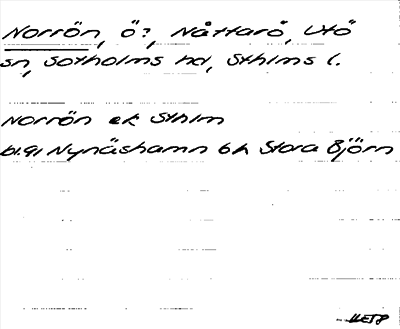 Norrön, ö?, Nåttarö, Utö
sn, Sotholms hd, Sthlms l.
Norrön ek Sthlm
bl.91 Nynäshamn 6h Stora Björn